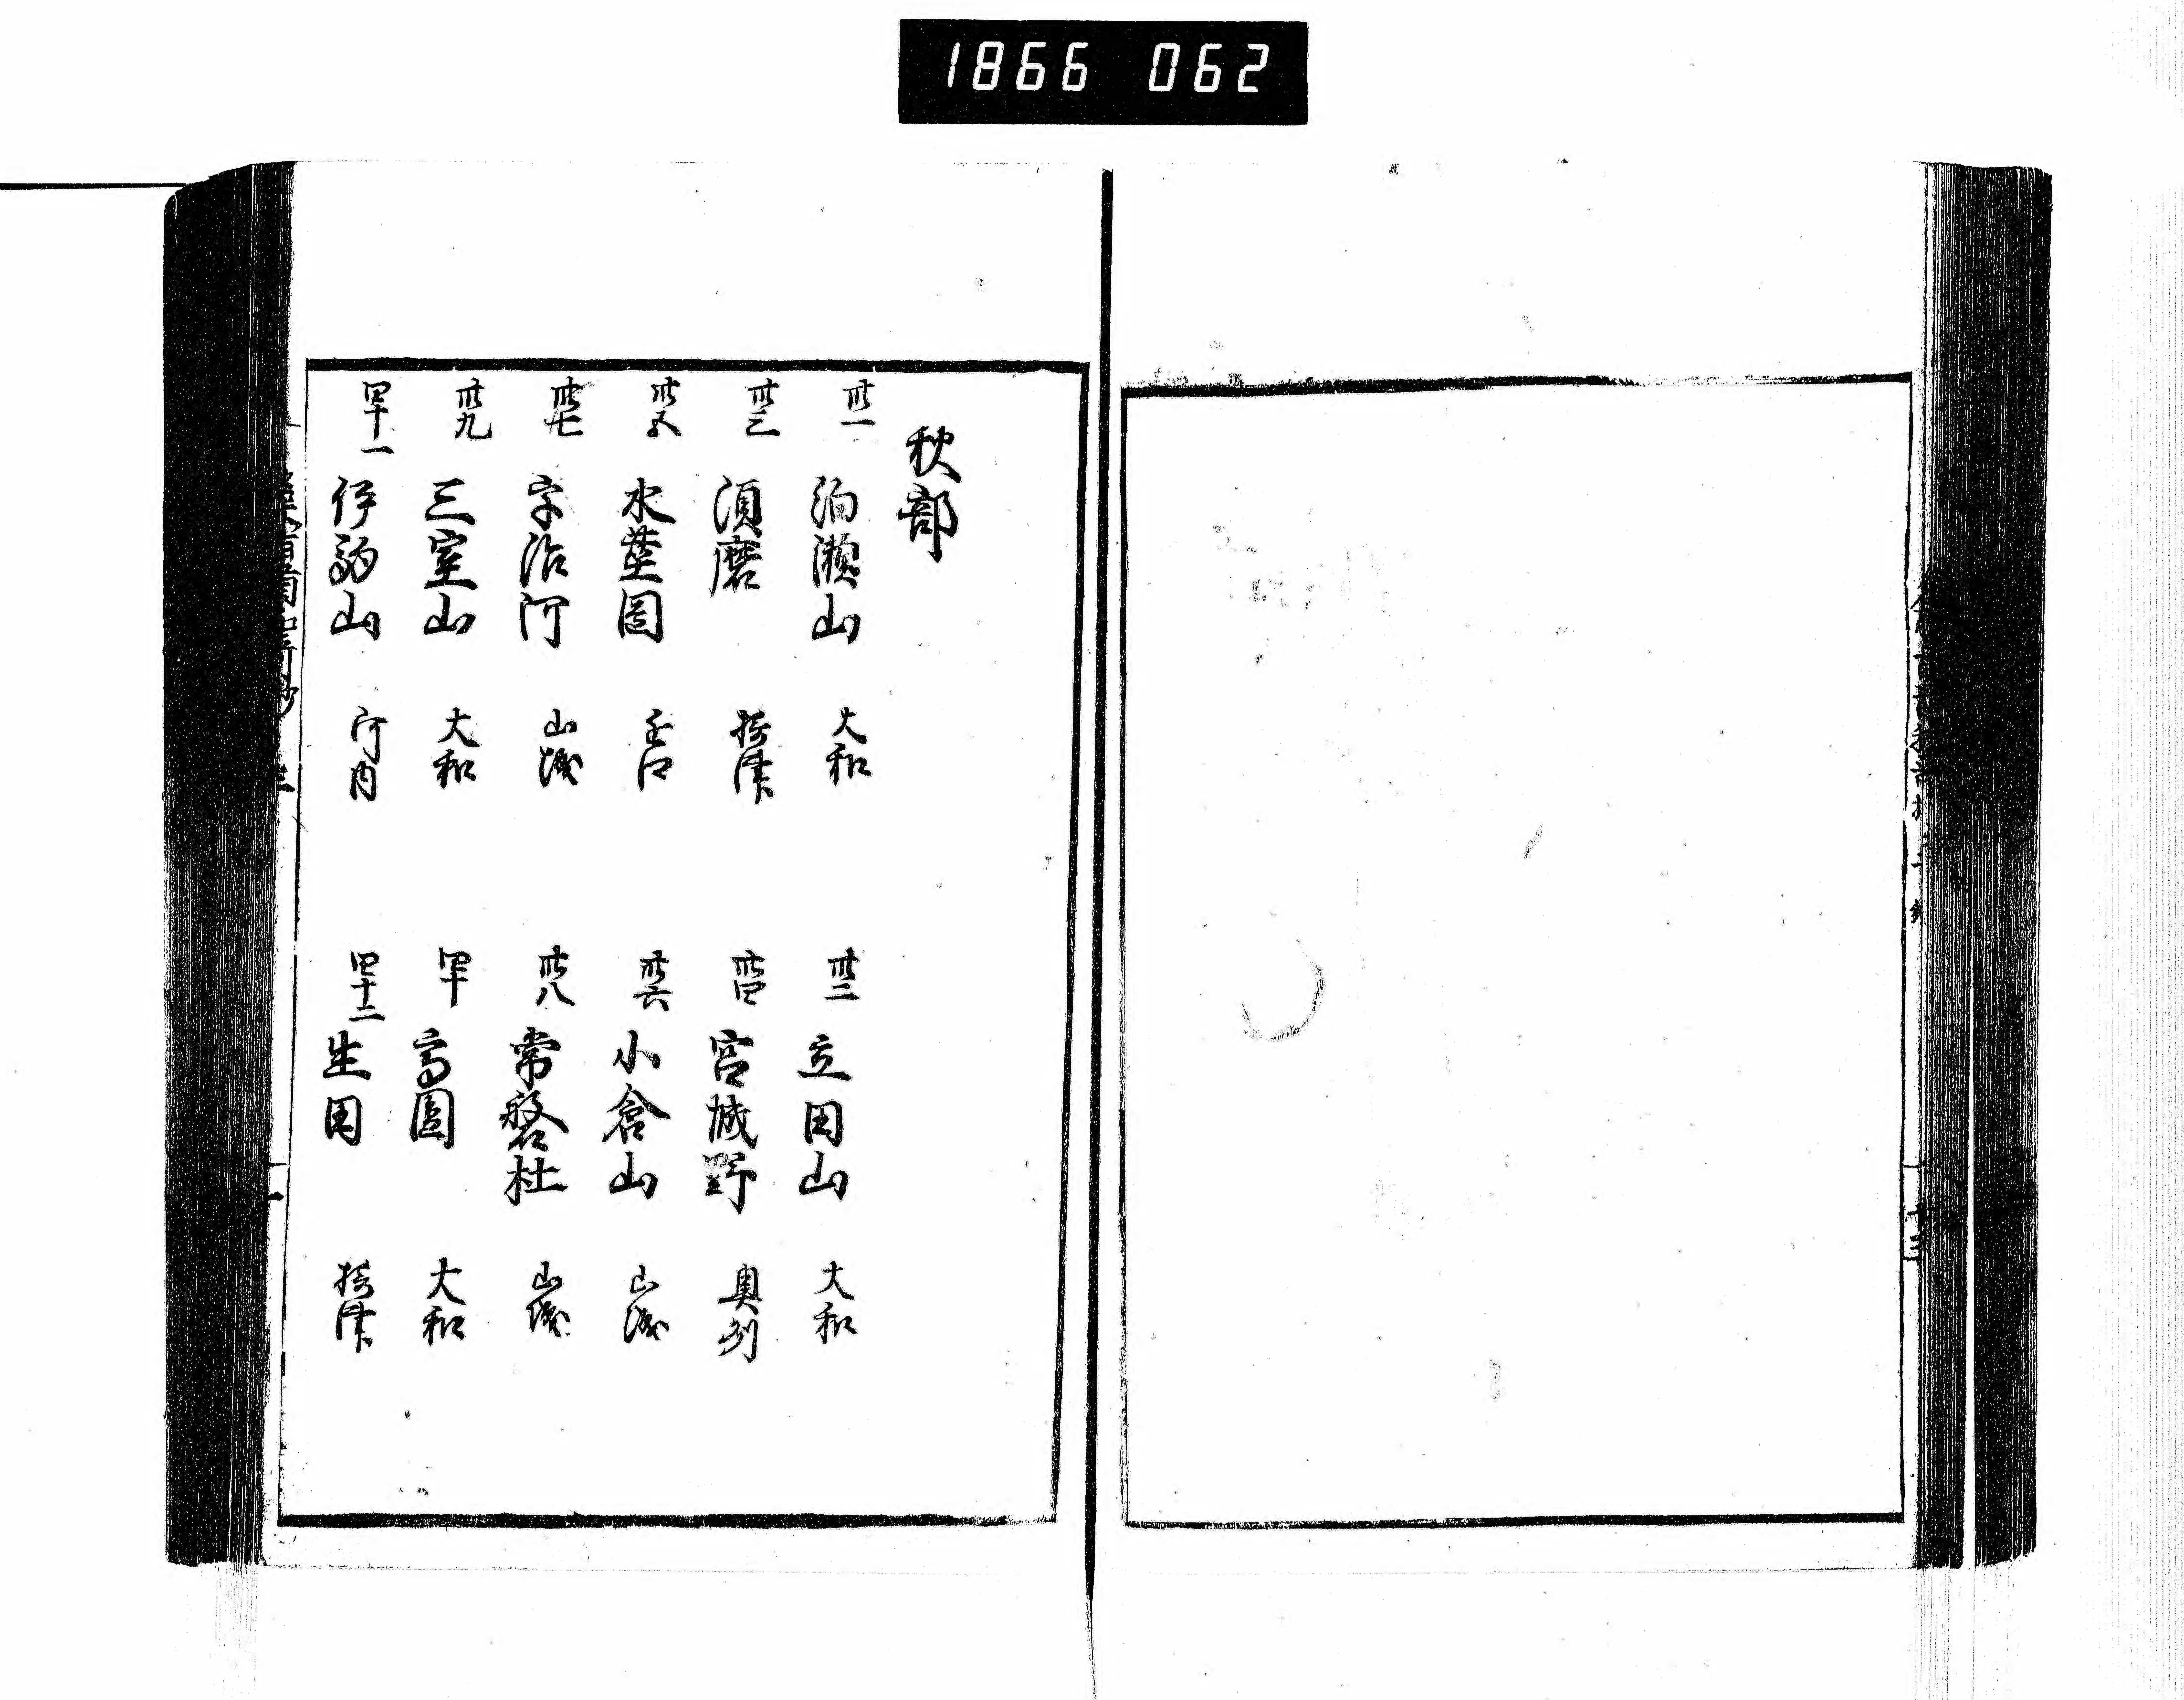 1866 062
秋部
卅一 泊瀬山 大和
卅二 立田山 大和
卅三 須磨 摂津
卅四 宮城野 奥州
卅五 水茎岡
卅六 小倉山 山城
卅七 宇治河 山城
卅八 常磐杜 山城
卅九 三室山 大和
四十 高圓 大和
四十一 伊駒山 河内
四十二 生田 摂津